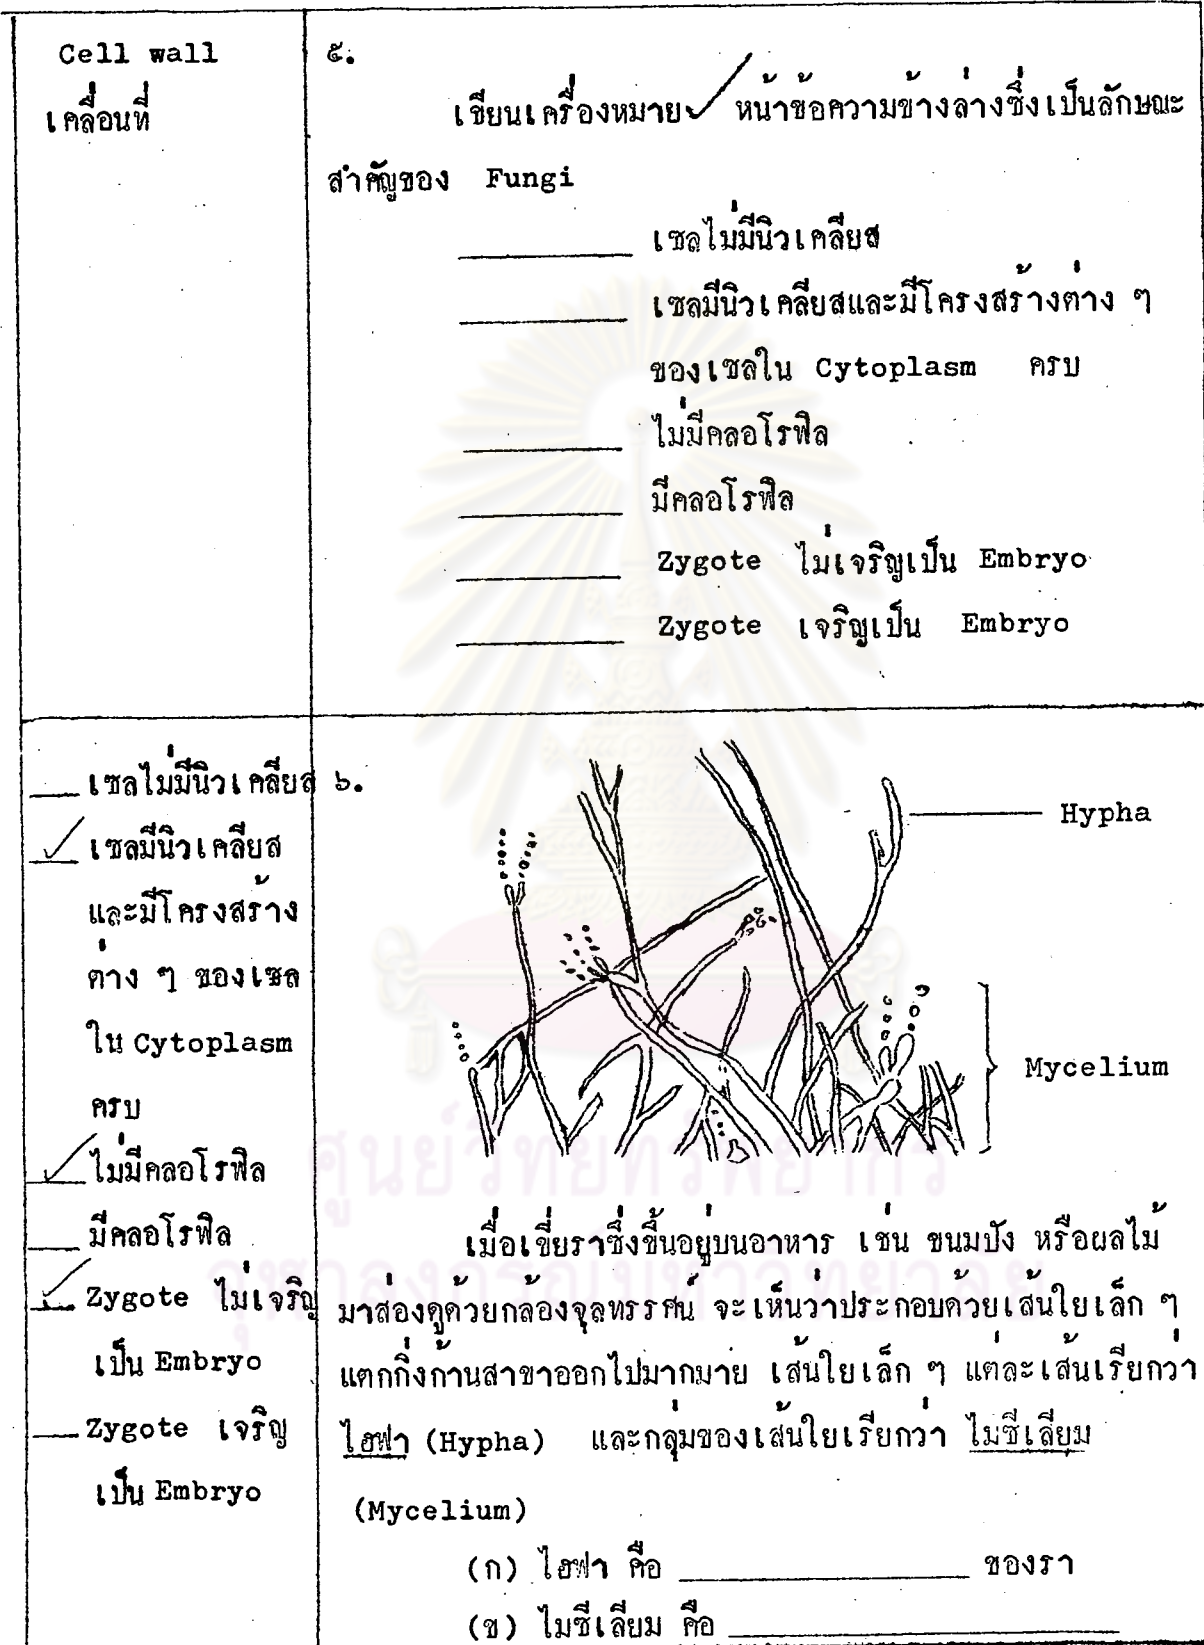 Cell wall
เคลื่อนที่
๕.
เขียนเครื่องหมาย ✓ หน้าข้อความข้างล่างซึ่งเป็นลักษณะ
สำคัญของ Fungi
________ เซลไม่มีนิวเคลียส
________ เซลมีนิวเคลียสและมีโครงสร้างต่าง ๆ
ของเซลใน Cytoplasm ครบ
________ ไม่มีคลอโรฟิล
________ มีคลอโรฟิล
________ Zygote ไม่เจริญเป็น Embryo
________ Zygote เจริญเป็น Embryo
___ เซลไม่มีนิวเคลียส
✓ เซลมีนิวเคลียส
และมีโครงสร้าง
ต่าง ๆ ของเซล
ใน Cytoplasm
ครบ
✓ ไม่มีคลอโรฟิล
___ มีคลอโรฟิล
✓ Zygote ไม่เจริญ
เป็น Embryo
___ Zygote เจริญ
เป็น Embryo
๖.
Hypha
Mycelium
เมื่อเขี่ยราซึ่งขึ้นอยู่บนอาหาร เช่น ขนมปัง หรือผลไม้
มาส่องดูด้วยกล้องจุลทรรศน์ จะเห็นว่าประกอบด้วยเส้นใยเล็ก ๆ
แตกกิ่งก้านสาขาออกไปมากมาย เส้นใยเล็ก ๆ แต่ละเส้นเรียกว่า
ไฮฟา (Hypha) และกลุ่มของเส้นใยเรียกว่า ไมซีเลียม
(Mycelium)
(ก) ไฮฟา คือ ____________ ของรา
(ข) ไมซีเลียม คือ ________________
ศูนย์วิทยทรัพยากร
จุฬาลงกรณ์มหาวิทยาลัย